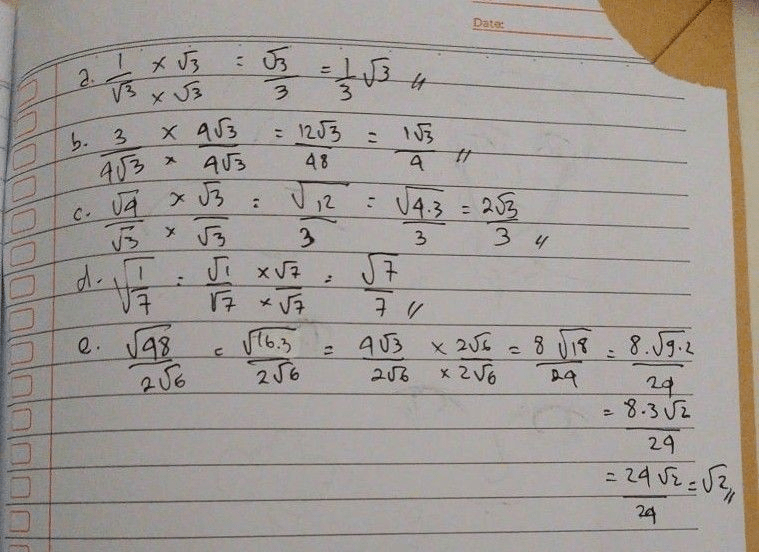 Date:
a. 1/√3 × √3/√3 = √3/3 = 1/3 √3 //
b. 3/4√3 × 4√3/4√3 = 12√3/48 = 1√3/4 //
c. √4/√3 × √3/√3 = √12/3 = √4.3/3 = 2√3/3 //
d. √1/7 = √1/√7 × √7/√7 = √7/7 //
e. √48/2√6 = √16.3/2√6 = 4√3/2√6 × 2√6/2√6 = 8√18/24 = 8.√9.2/24
= 8.3√2/24
= 24√2/24 = √2 //